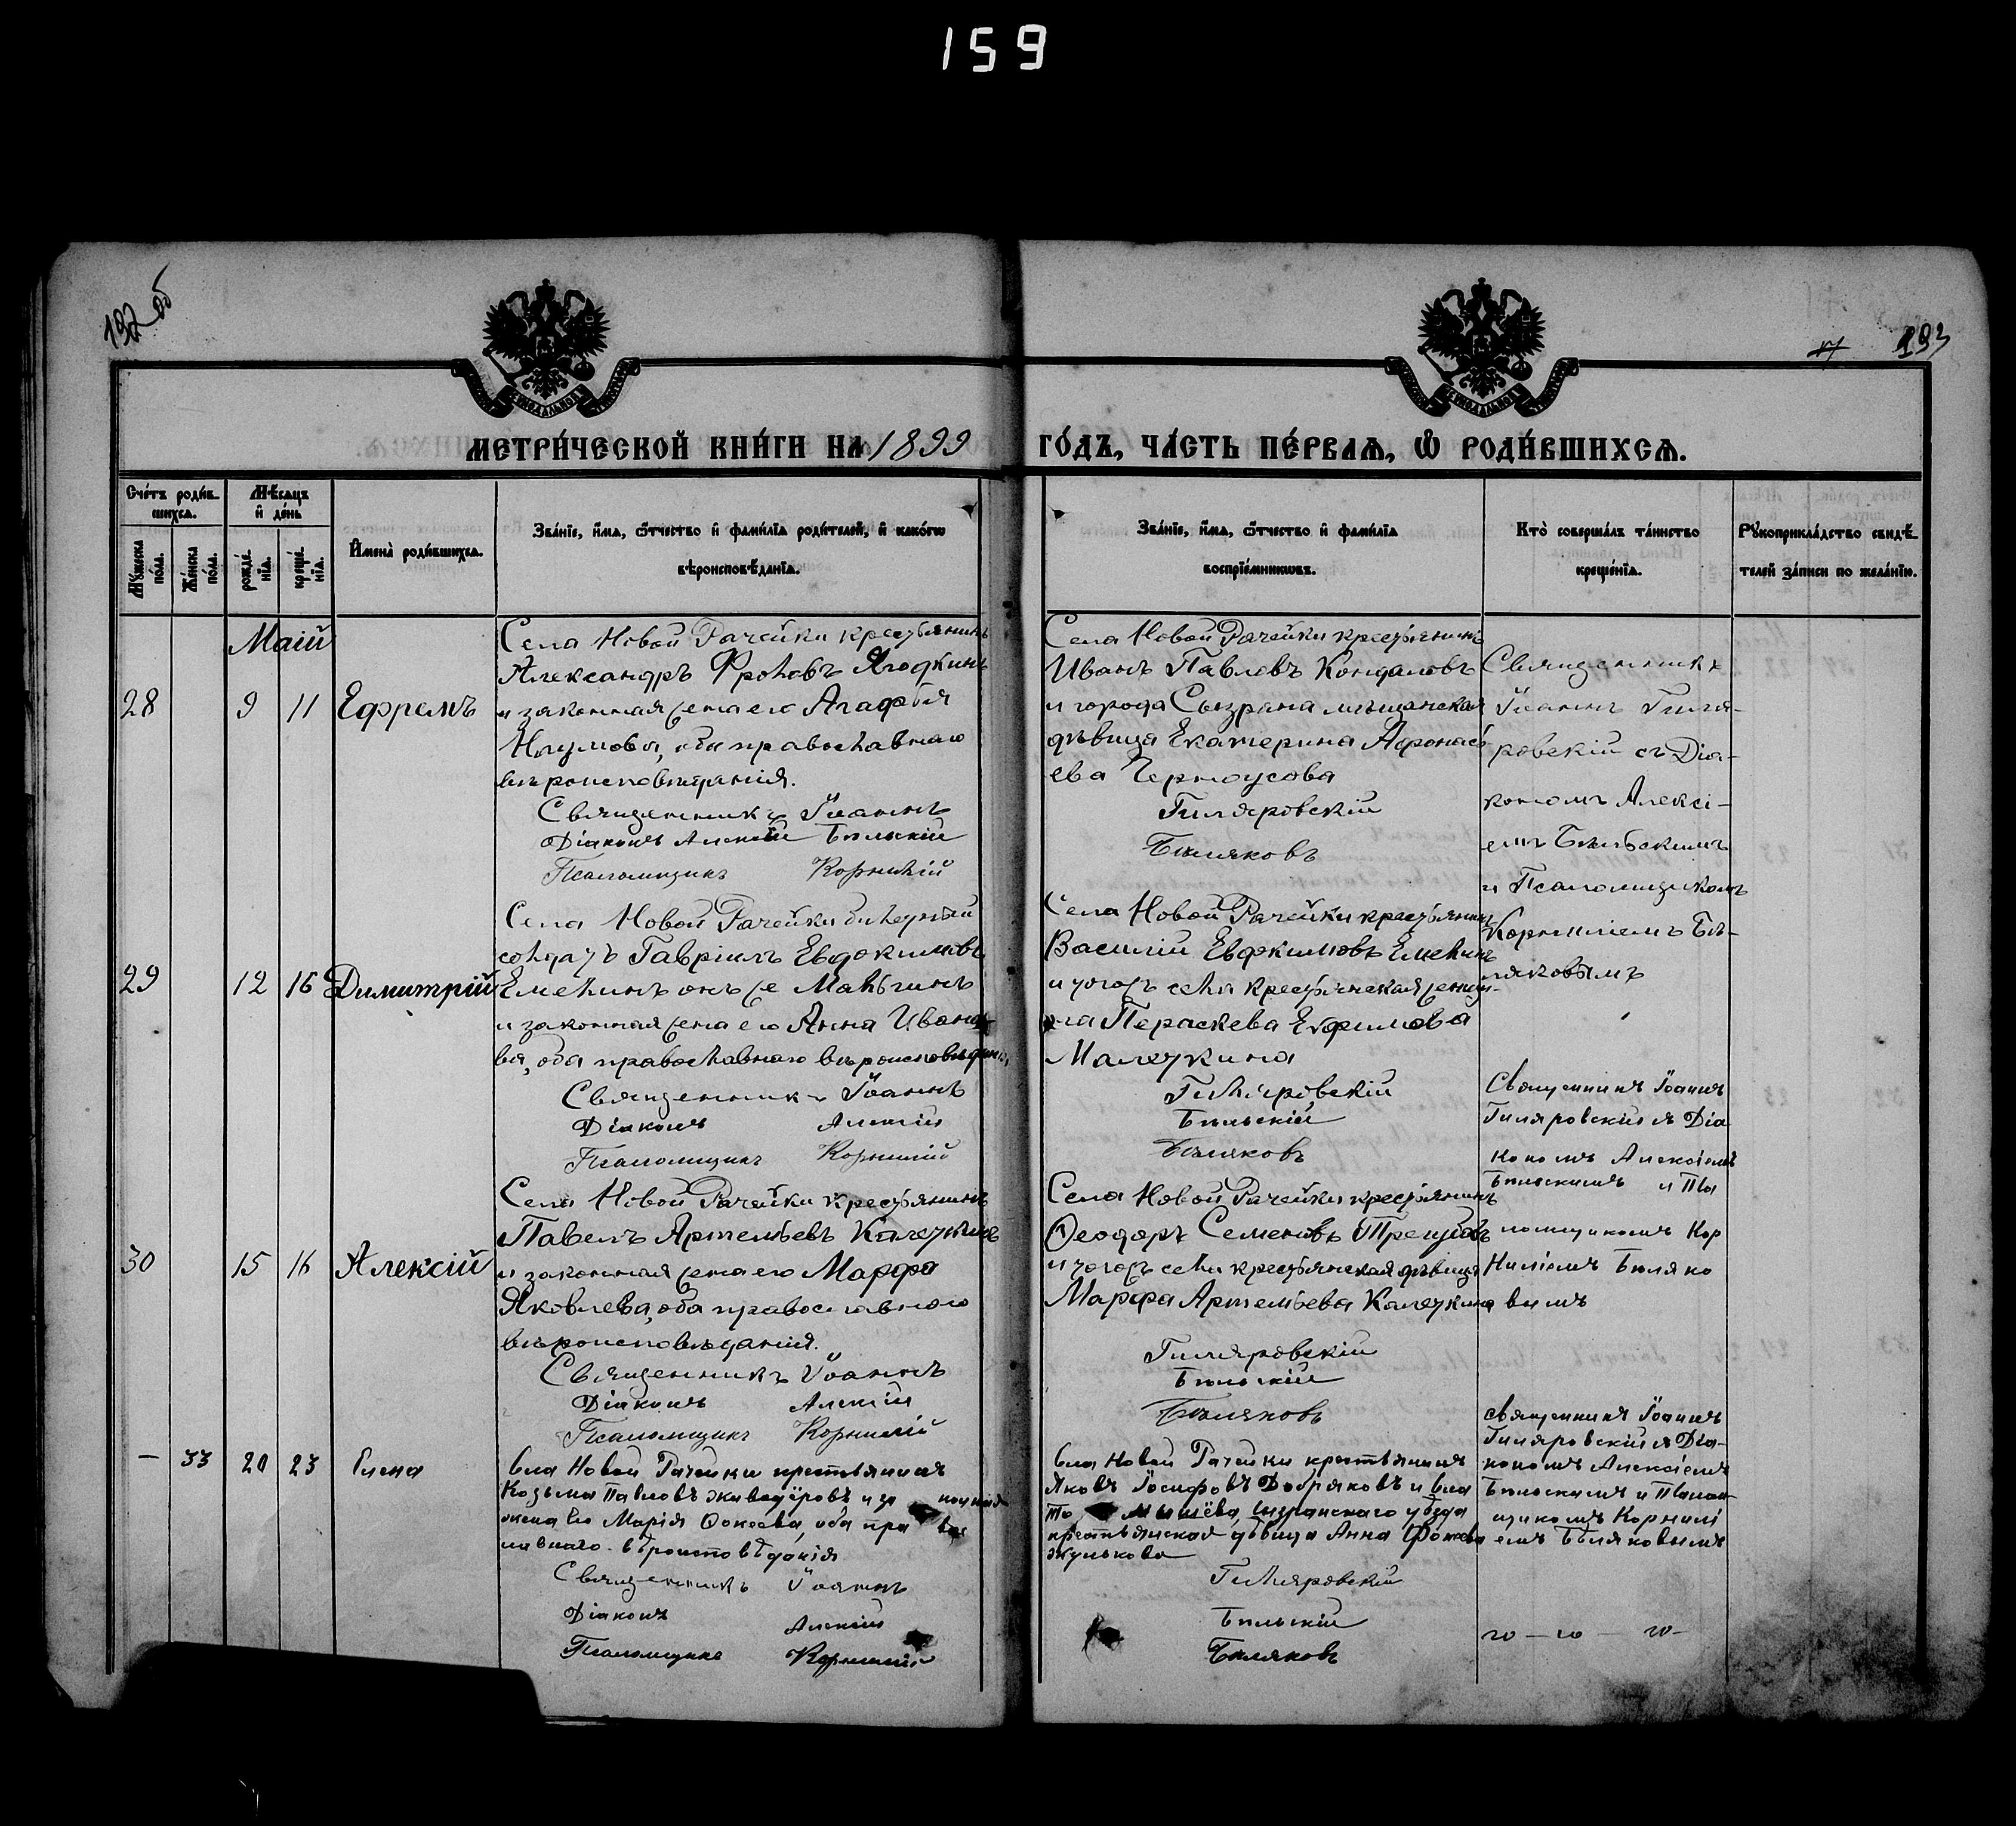 159
192 об
193
МЕТРИ́ЧЕСКОЙ КНИ́ГИ НА 1899 ГО́ДЪ, ЧА́СТЬ ПЕ́РВАѦ, Ѡ РОДИ́ВШИХСѦ.
Сче́тъ роди́в-
шихсѧ.
Мꙋ́жеска по́ла.
Же́нска по́ла.
Мѣ́сѧцъ
и҆ де́нь
рожде́-
нїѧ.
креще́-
нїѧ.
И҆мена̀ роди́вшихсѧ.
Зва́нїе, и҆́мѧ, ѻ҆́тчество и҆ фами́лїѧ роди́телей, и҆ како́гѡ
вѣроисповѣ́данїѧ.
Зва́нїе, и҆́мѧ, ѻ҆́тчество и҆ фами́лїѧ
воспрїе́мникѡвъ.
Кто̀ соверша́лъ та́инство
креще́нїѧ.
Рꙋкоприкла́дство свидѣ́-
телей за́писи по жела́нїю.
Маій
28 9 11 Ефремъ
Села Новой Рачейки крестьянинъ
Александръ Фроловъ Ягодкинъ
и законная жена его Агафья
Наумова, оба православнаго
вѣроисповѣданія.
Священникъ Іоаннъ
Діаконъ Алексій Бѣльскій
Псаломщикъ Корнилій
Села Новой Рачейки крестьянинъ
Иванъ Павловъ Кондаловъ
и города Сызрана мѣщанская
дѣвица Екатерина Афонась
ева Черноусова
Гиляровскій
Бѣляковъ
Священникъ
Іоаннъ Гиля-
ровскій съ Діа-
кономъ Алексі-
емъ Бѣльскимъ
и Псаломщикомъ
Корниліемъ Бѣ-
ляковымъ
29 12 16 Димитрій
Села Новой Рачейки билетный
солдатъ Гавріилъ Евдокимовъ
Емелинъ онъ же Малыгинъ
и законная жена его Анна Ивано
ва, оба православнаго вѣроисповѣданія
Священникъ Іоаннъ
Діаконъ Алексій
Псаломщикъ Корнилій
Села Новой Рачейки крестьянинъ
Василій Евдокимовъ Емелинъ
и тогожъ села крестьянская женщи-
на Параскева Ефимова
Малеткина
Гиляровскій
Бѣльскій
Бѣляковъ
Священникъ Іоаннъ
Гиляровскій съ Діа
кономъ Алексіемъ
Бѣльскимъ и Пса
ломщикомъ Кор
ниліемъ Бѣляко
вымъ
30 15 16 Алексій
Села Новой Рачейки крестьянинъ
Павелъ Артемьевъ Калеткинъ
и законная жена его Марфа
Яковлева, оба православнаго
вѣроисповѣданія.
Священникъ Іоаннъ
Діаконъ Алексій
Псаломщикъ Корнилій
Села Новой Рачейки крестьянинъ
Ѳеодоръ Семеновъ
и тогожъ села крестьянская дѣвица
Марфа Артемьева Калеткина
Гиляровскій
Бѣльскій
Бѣляковъ
Священникъ Іоаннъ
Гиляровскій съ Діа-
кономъ Алексіемъ
Бѣльскимъ и Псалом
щикомъ Корнилі
емъ Бѣляковымъ
— 33 20 23 Елена
Села Новой Рачейки крестьянинъ
Козьма Павловъ Живодёровъ и за конная
жена его Марія Ѳокеева, оба пра вос
лавнаго вѣроисповѣданія
Священникъ Іоаннъ
Діаконъ Алексій
Псаломщикъ Корнилій
Села Новой Рачейки крестьянинъ
Яковъ Іосифовъ Добряковъ и села
Сызранскаго уѣзда
крестьянская дѣвица Анна Фотіева
Жулькова
Гиляровскій
Бѣльскій
Бѣляковъ